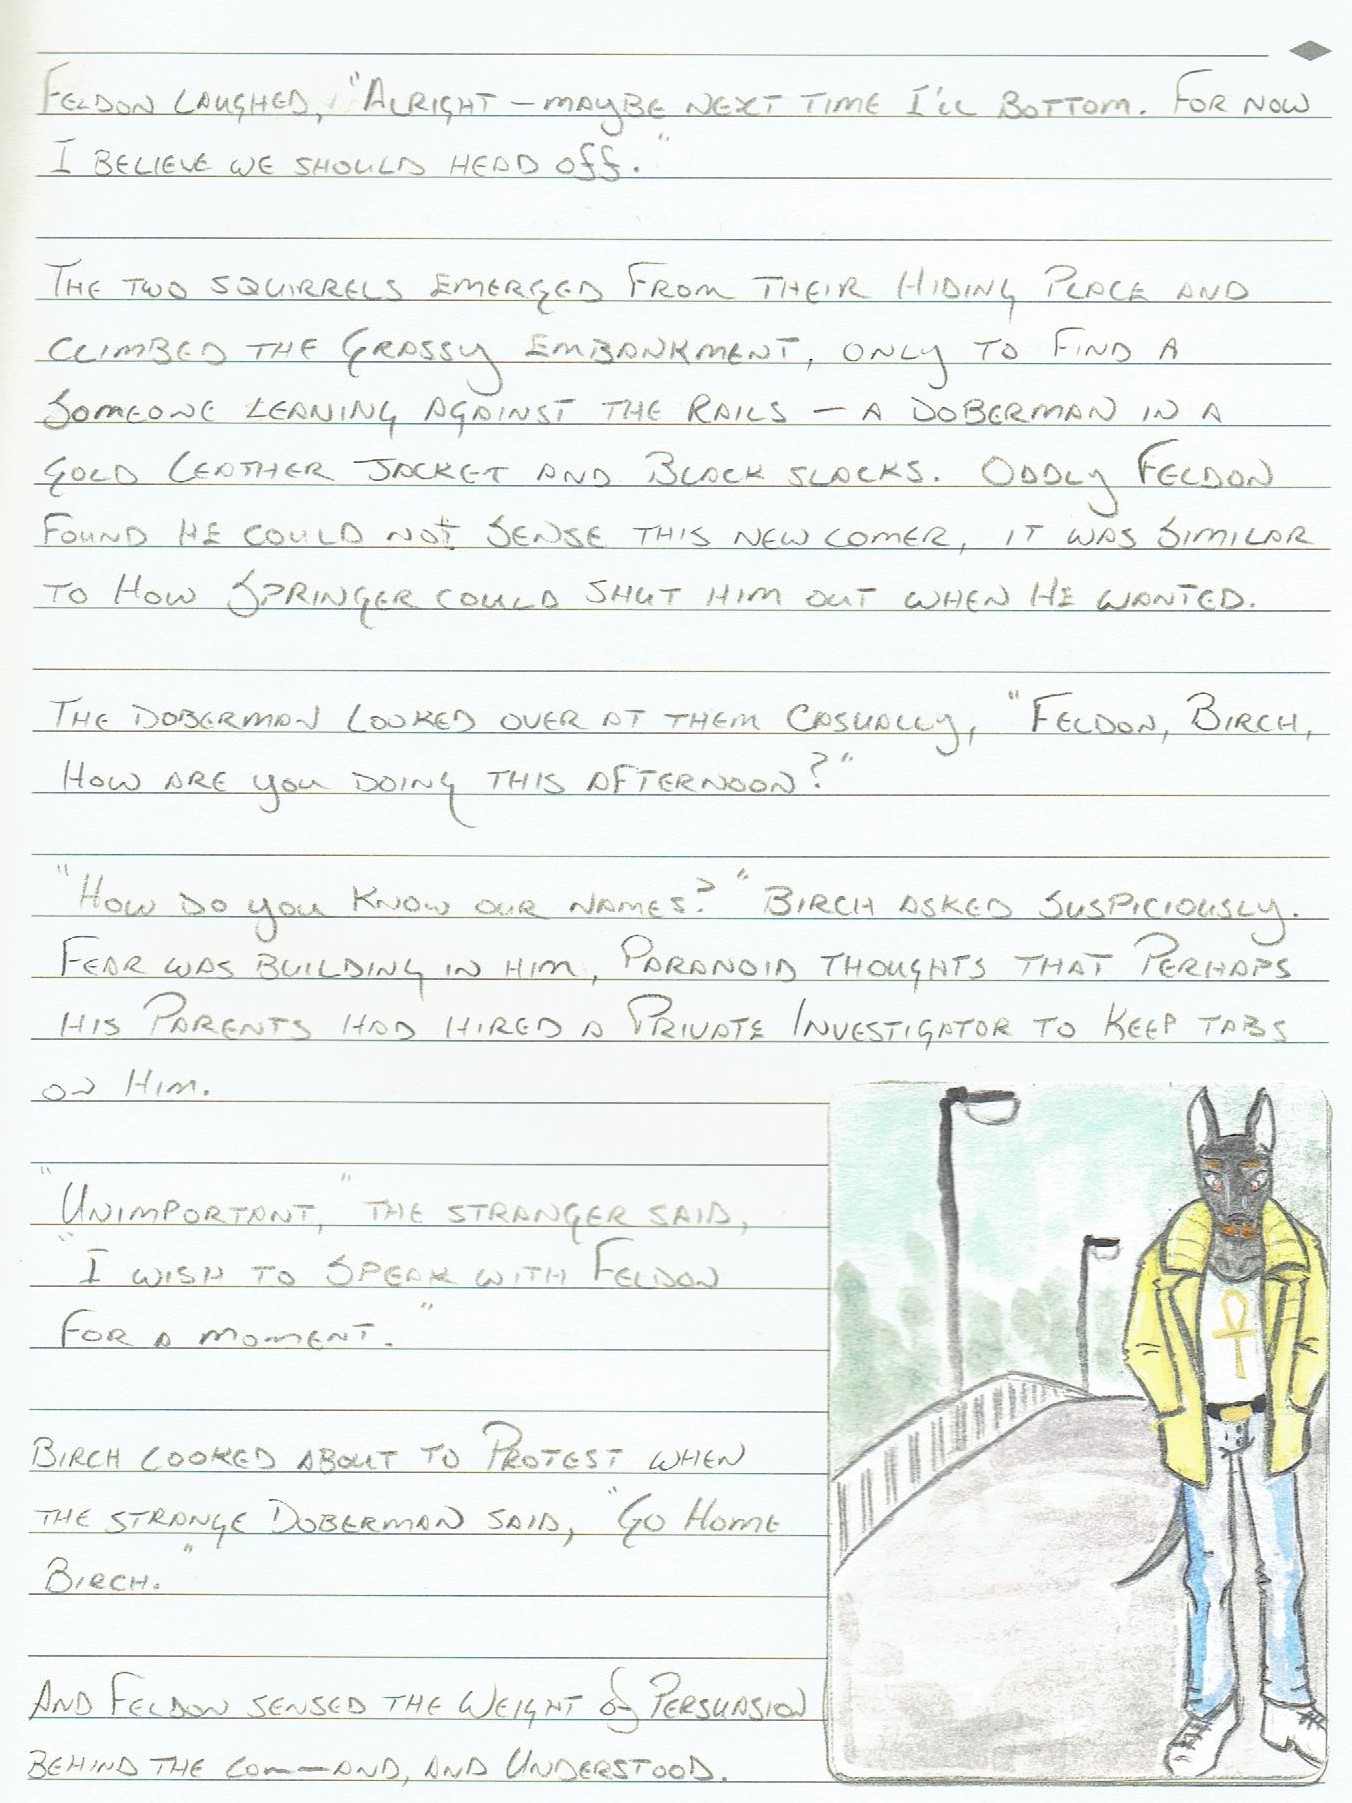 Feldon laughed, "Alright – maybe next time I'll bottom. For now
I believe we should head off."
The two squirrels emerged from their hiding place and
climbed the grassy embankment, only to find a
someone leaning against the rails – a doberman in a
gold leather jacket and black slacks. Oddly Feldon
found he could not sense this new comer, it was similar
to how Springer could shut him out when he wanted.
The doberman looked over at them casually, "Feldon, Birch,
How are you doing this afternoon?"
"How do you know our names?" Birch asked suspiciously.
Fear was building in him, paranoid thoughts that perhaps
his parents had hired a private investigator to keep tabs
on him.
"Unimportant," the stranger said,
"I wish to speak with Feldon
for a moment."
Birch looked about to protest when
the strange Doberman said, "Go home
Birch."
And Feldon sensed the weight of persuasion
behind the command, and understood.